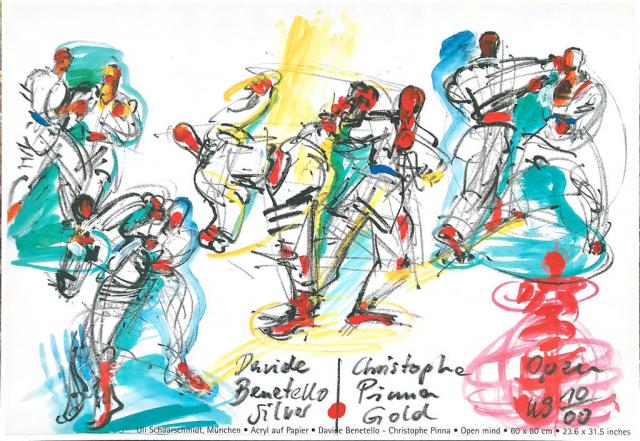 Davide
Benetello
Silver
Christophe
Pinna
Gold
Open
US 10/00
Uli Schaarschmidt, München • Acryl auf Papier • Davide Benetello - Christophe Pinna • Open mind • 60 x 80 cm • 23.6 x 31.5 inches